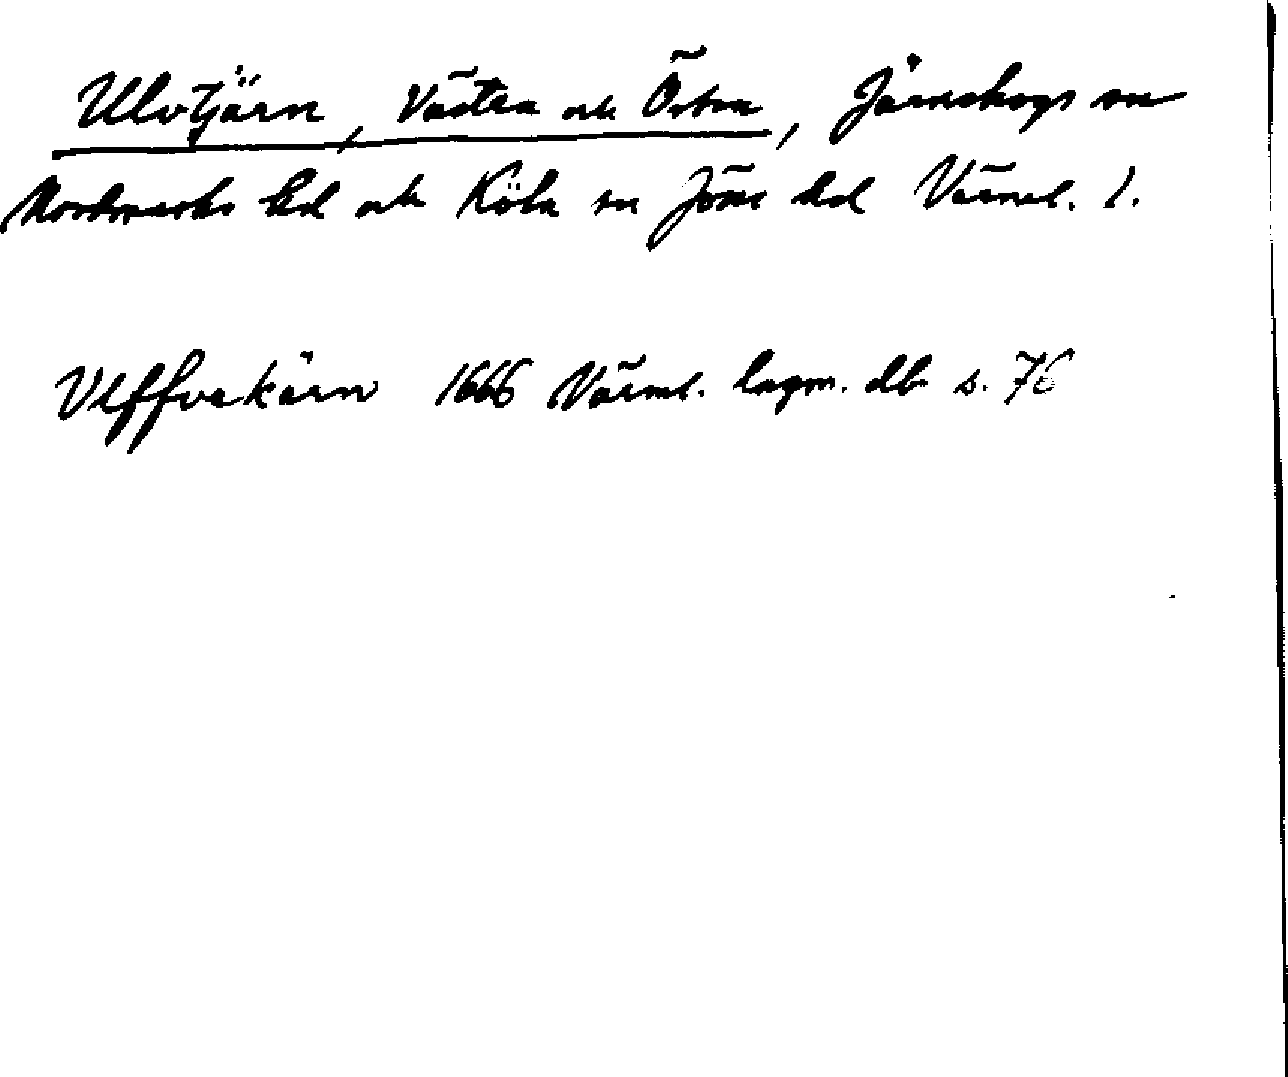 Ulvtjärn, Västra och Östra, Järnskogs sn
Nordmarks hd och Köla sn Jösse hd Värml. l.
Ulffvekärn 1666 Värml. lagm. db s. 76